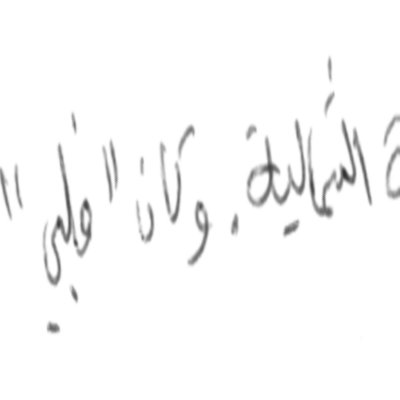 ة الشمالية. وكان "فلبي"